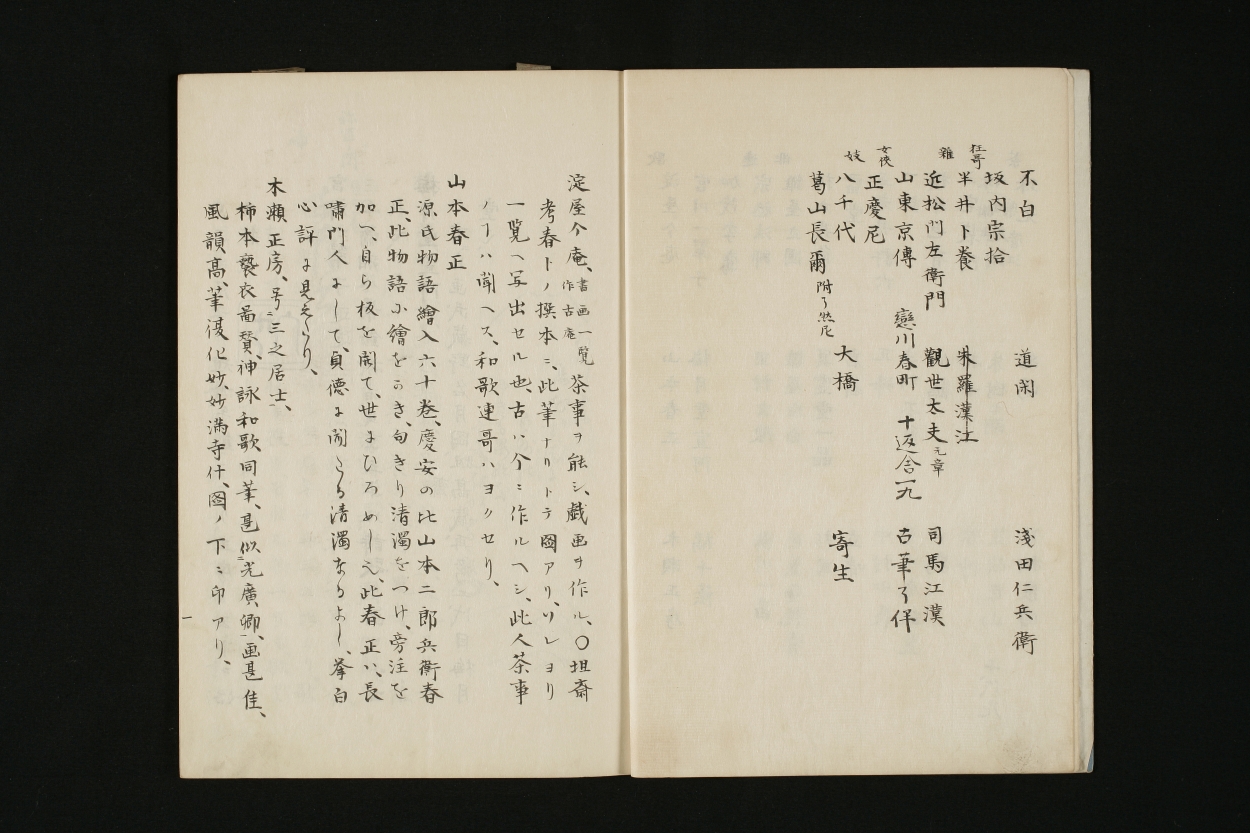 不白 道閑 淺田仁兵衛
坂内宗拾
狂哥
半井卜養 朱羅漢江
近松門左衛門 觀世太夫元章 司馬江漠
雜
山東京傳 戀川春町 十返舎一九 古華了伴
女俠
正慶尼
八千代 大橋 寄生
妓
葛山長爾 附り然尼
淀屋个庵、書画一覧作古庵 茶事ヲ能シ、戯画ヲ作ル、〇坦斎
考春卜ノ撰本ニ、此筆ナリトテ圖アリ、ソレヨリ
一覧ヘ写出セル也、古ハ个ニ作ルヘシ、此人茶事
ノヿハ聞ヘス、和歌連哥ハヨクセリ、
山本春正
源氏物語繪入六十巻、慶安の比山本二郎兵衛春
正、此物語に繪をかき、句きり清濁をつけ、旁注を
加へ、自ら板を開て、世にひろめし也、此春正ハ、長
嘯門人にして、貞徳に聞たる清濁なるよし、峯白
心評に見えたり、
木瀬正房、号ニ三之居士、
柿本褻衣畾賛、神詠和歌同筆、甚似ニ光廣卿、画甚佳、
風韻髙、筆淺化妙、妙満寺什、圖ノ下ニ印アリ、
一